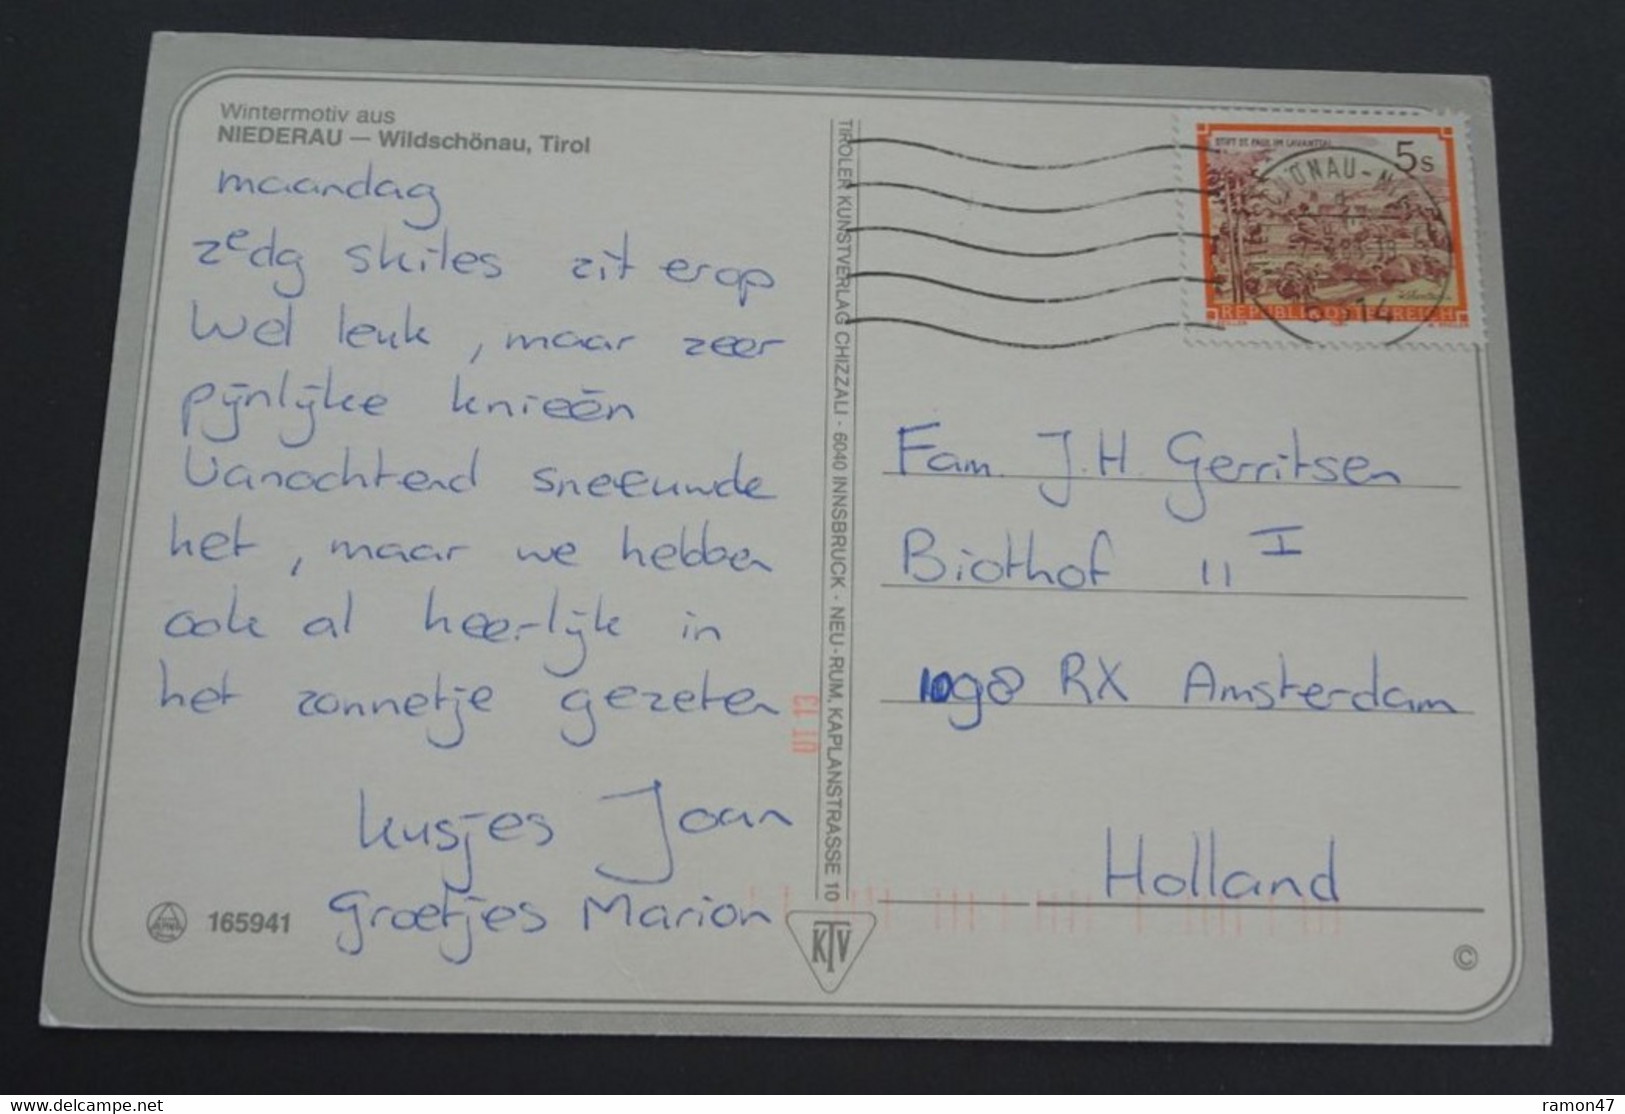 Wintermotiv aus
NIEDERAU — Wildschönau, Tirol
maandag
zedg skiles zit erop
Wel leuk, maar zeer
pijnlijke knieën
Vanochtend sneeuwde
het, maar we hebben
ook al heerlijk in
het zonnetje gezeten
kusjes Joan
Groetjes Marion
165941
TIROLER KUNSTVERLAG CHIZZALI · 6040 INNSBRUCK · NEU-RUM, KAPLANSTRASSE 10
KTV
STIFT ST. PAUL IM LAVANTTAL
5s
REPUBLIK ÖSTERREICH
Fam. J.H. Gerritsen
Biothof 11 I
1098 RX Amsterdam
Holland
©
delcampe.net
ramon47